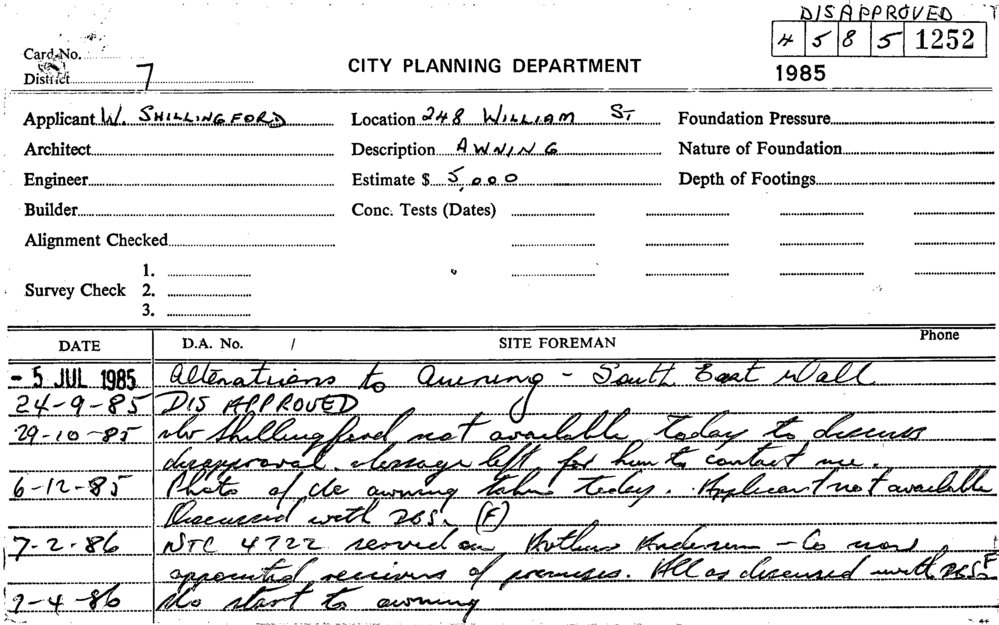 DISAPPROVED
4 5 8 5 1252
1985
Card No.
District 7
CITY PLANNING DEPARTMENT
Applicant W. SHILLINGFORD Location 248 WILLIAM ST Foundation Pressure
Architect Description AWNING Nature of Foundation
Engineer Estimate $ 5,000 Depth of Footings
Builder Conc. Tests (Dates)
Alignment Checked
1.
Survey Check 2.
3.
DATE D.A. No. / SITE FOREMAN Phone
- 5 JUL 1985 Alterations to Awning - South East Wall
24-9-85 DISAPPROVED
29-10-85 Mr Shillingford not available today to discuss
disapproval. Message left for him to contact me.
6-12-85 Photo of the awning taken today. Applicant not available
Discussed with DBS. (F)
7-2-86 NTC 4722 served on Arthur Andersen - Co now
appointed receivers of premises. All as discussed with DBS F
2-4-86 No start to awning